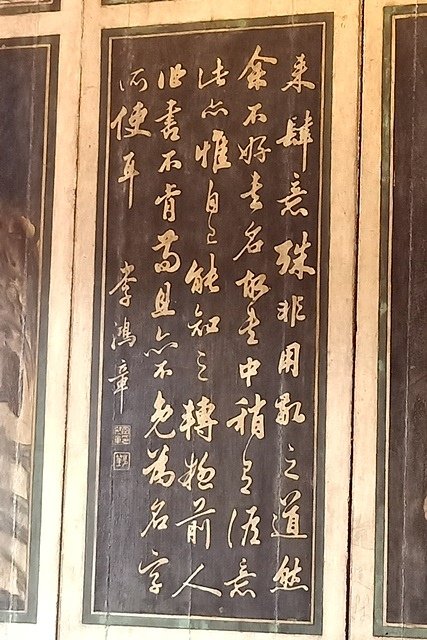 來肆意殊非用敬之道然
余不好書名故書中稍有淡意
此亦惟自己能知之轉前人
作書不肯苟且亦不免為名字
所使耳
李鴻章